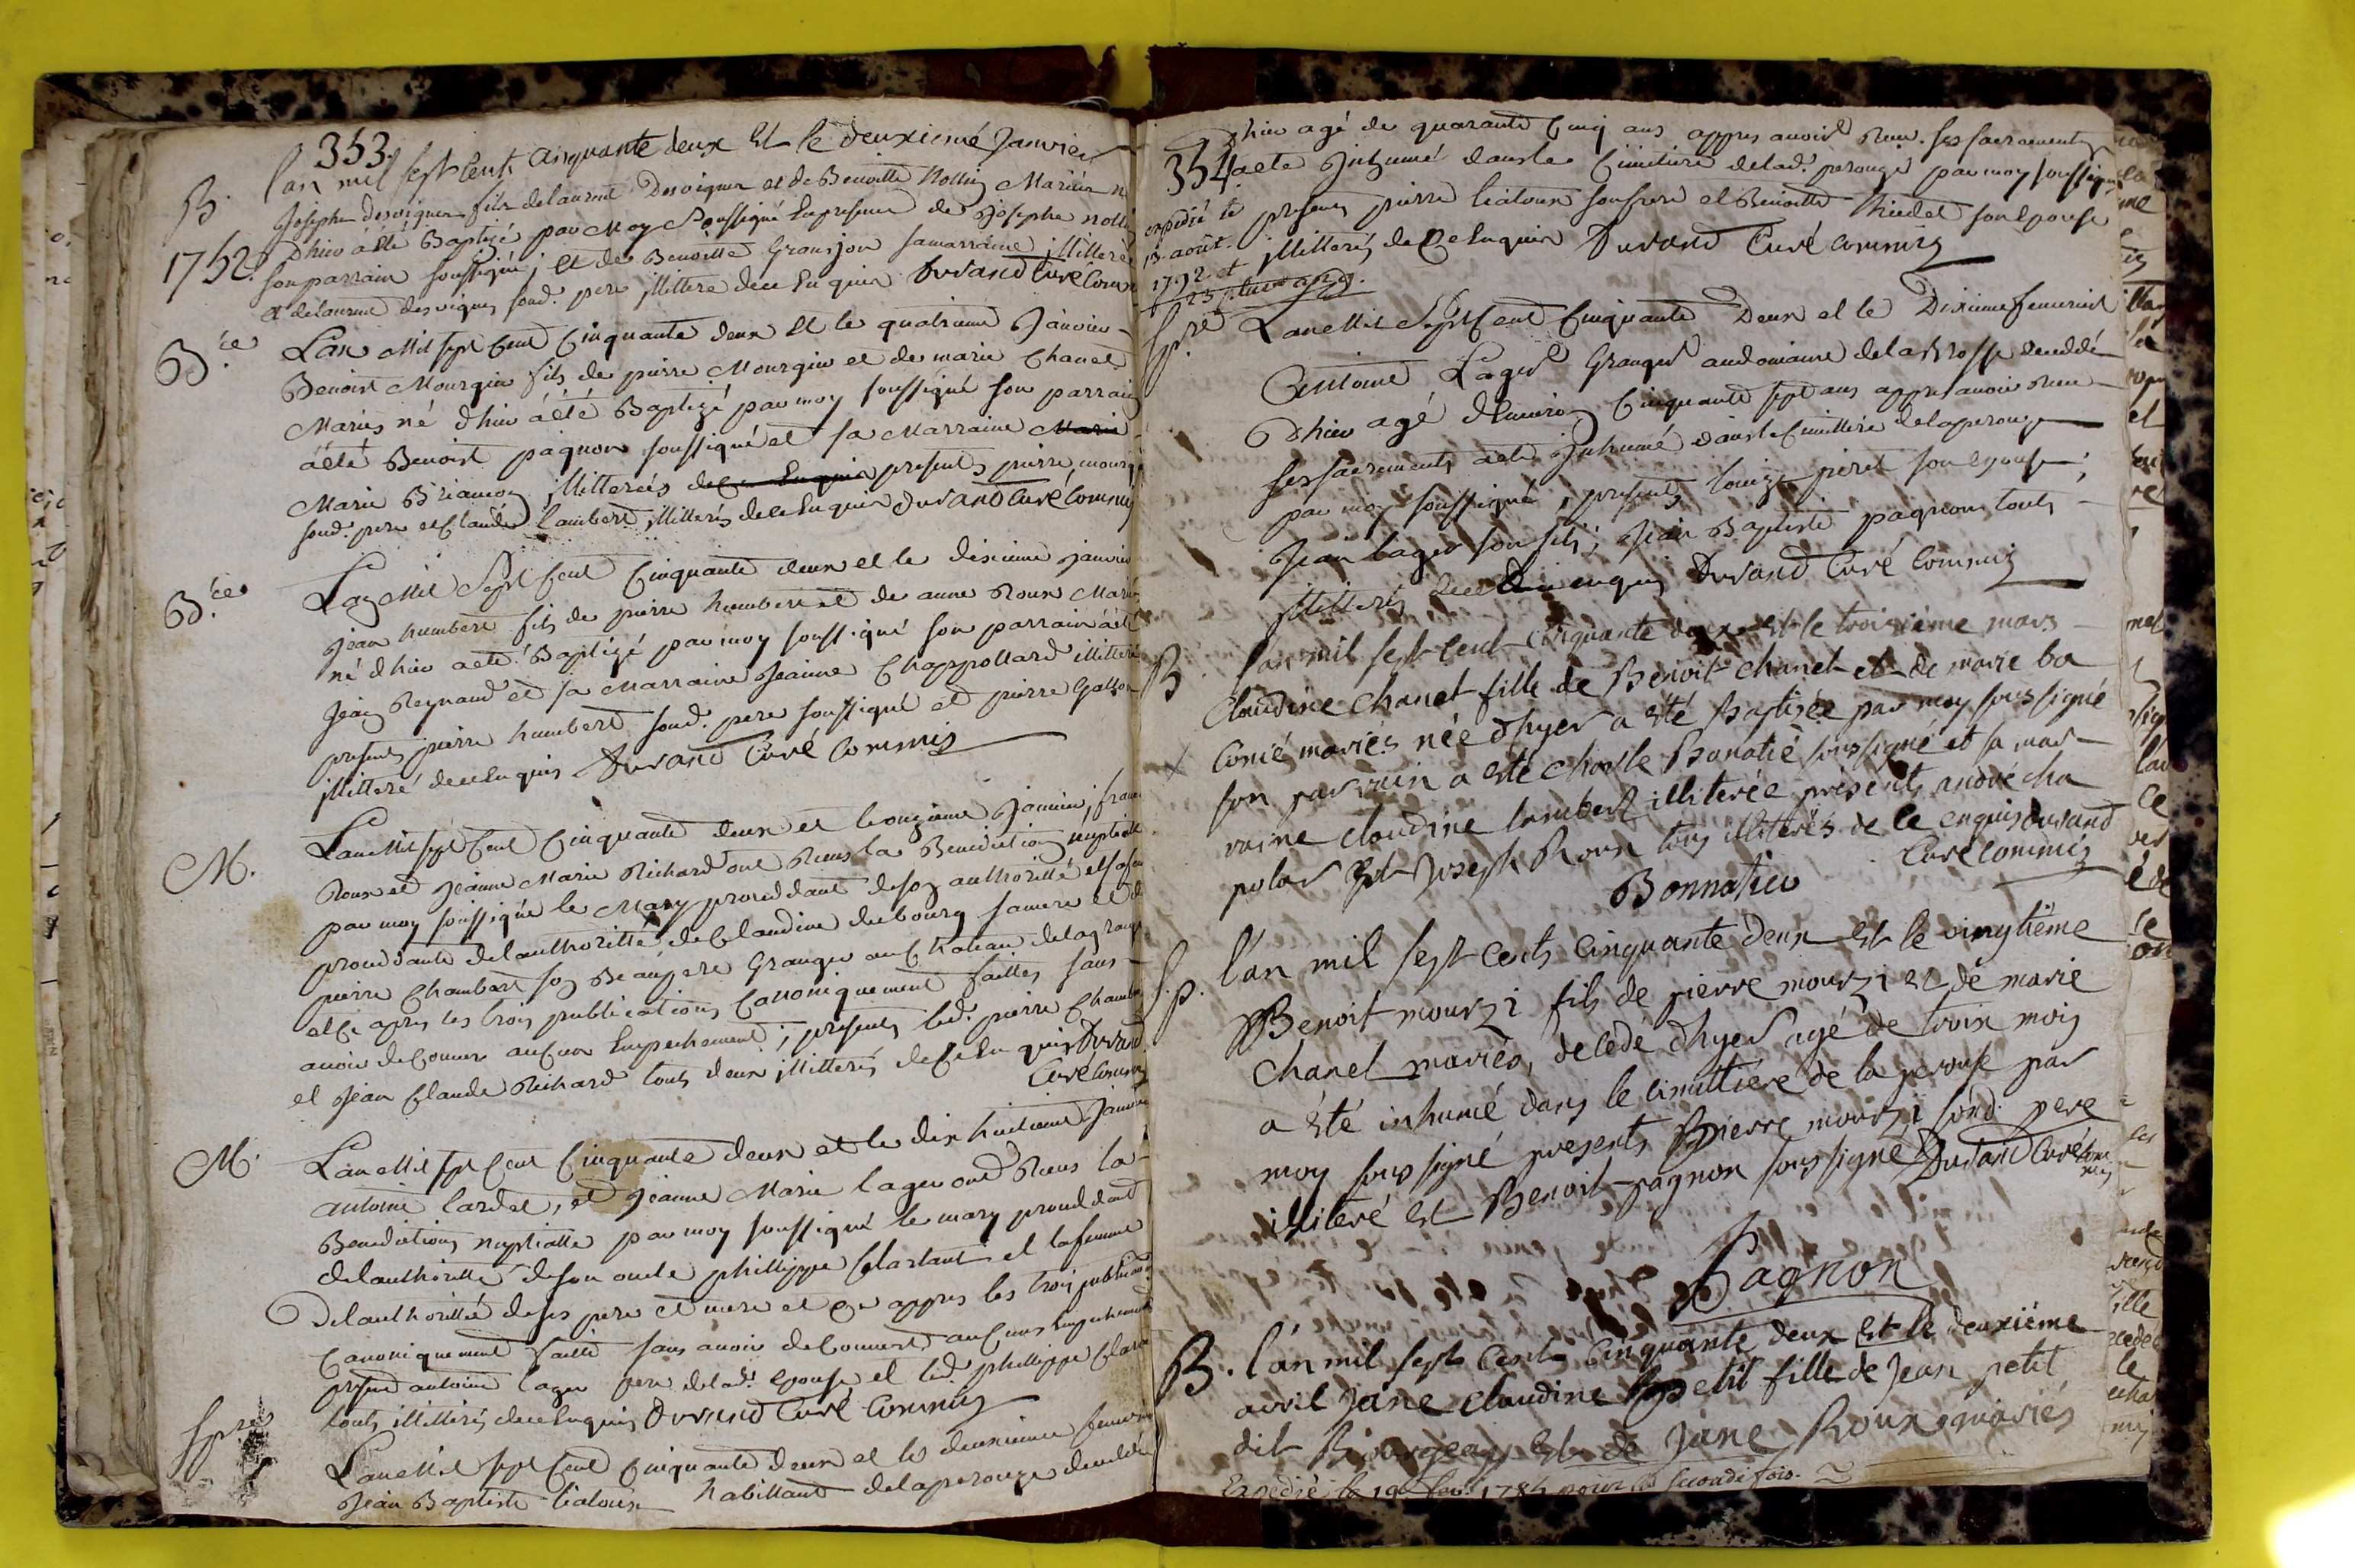 353.
B.
1752.
l'an mil sept cents cinquante deux Et le deuxieme Janvier
Josephe desvignes fils de laurent Desvignes et de Benoitte Nollin Mariés né
Dhier á été Baptizé par Moy Soussigné En presence de Josephe nollin
son parrain soussigné; et de Benoitte Gransjon sa marraine illiterée
et de laurent desvignes sond. pere illittere de ce Enquis Durand Curé Comm
B.ce
L'an Mil sept Cent Cinquante deux Et le quatrieme Janvier
Benoist Mourgin fils de pierre Mourgin et de marie Chanet
Mariés né d'hier áété Baptizé par moy soussigné son parrain
áété Benoist pagnon soussigné et sa Marraine Marie
Marie Briancon illitterés de ce Enquis presents pierre mourg
sond. pere et Claude lambert illitterés de ce Enquis Durand Curé Commis
B.ce
L'an Mil Sept Cent Cinquante deux et le dixieme janvier
Jean humbert fils de pierre humbert et de anne Roux Mariés
né dhier aeté Baptizé par moy soussigné son parrain áété
Jean Reynaud et sa Marraine Jeanne Chappollard illitteré
presents pierre humbert sond. pere soussigné et pierre
illitteré de ce Enquis Durand Curé Commis
M.
L'an Mil sept Cent Cinquante deux et le onzieme Janvier, fran
Roux et Jeanne Marie Richard ont Recus la Benediction nuptialle
par moy soussigné le Mary proceddant de son authorité et sa fe
proceddante de l'authoritté de Claudine dubourg sa mere et de
pierre Chambart son Beaupere Granger au Chateau de la grange
et Ce apres les trois publications Canoniquement faittes sans
avoir decouver aucun Empechement; presents led. pierre Chamba
et Jean Claude Richard touts deux illitterés de Ce Enquis Durand
Curé Commis
M.
L'an Mil sept Cent Cinquante deux et le dix huitieme Janvier
antoine lardet, et Jeanne Marie lager ont Recus la
Benediction nuptialle par moy soussigné le mary proceddant
de l'authoritté de son oncle phillippe Clastant et la femme
De l'authoritté de ses pere et mere et Ce appres les trois publications
Canoniquement faitte sans avoir decouvert aucuns Empechement
presents antoine lager pere de lad. epouse et led. phillippe Clas
touts illitterés de ce Enquis Durand Curé Commis
Sp.re
L'an Mil sept Cent Cinquante deux et le deuxieme fevrier
Jean Baptiste liatoux habittant de la perouze deceddé
354.
Dhier agé de quarante Cinq ans appres avoir Recu ses sacrements
a ete Inhumé dans le Cimittiere de lad. perouge par moy soussigné
presents pierre liatoux son frere et Benoitte Thiedet son Epouse
illitterés de Ce Enquis Durand Curé Commis
expedié le
13 août.
1792 et
Sp.re
L'an Mil Sept Cent Cinquante Deux et le Dixieme fevrier
Antoine Lager Granger au domaine de la Brosse deceddé
Dhier agé d'Environ Cinquante sept ans appres avoir Recu
ses sacrements aeté Inhumé dans le Cimittiere de la perouge
par moy soussigné, presents louize piret son epouse;
Jean lager son fils, Jean Baptiste pagnon touts
illitterés de ce enquis Durand Curé Commis
B.
l'an mil sept cent cinquante deux et le troisiéme mars
Claudine chanet fille de Benoit chanet et de marie ba
conié mariés née d'hyer a été baptisée par moy soussigné
son parrain a été charle Bonatié soussigné et sa mar
raine claudine lambert illiterée présents andré cha
polar Et Joseph Roux tous illiterés de ce enquis Durand
Curé Commis
Bonnatieu
S.p.
l'an mil sept cents cinquante deux et le vingtiéme
Benoit mourzi fils de pierre mourzi et de marie
chanel mariés, decedé d'hyer agé de trois mois
a été inhumé dans le cimittiere de la perouse par
moy soussigné presents Pierre mourzi sond. pere
illiteré et Benoit pagnon soussigné Durand Curé Com
mis
Pagnon
B.
l'an mil sept cents cinquante deux Et le deuxiéme
avril Jane claudine petit fille de Jean petit
dit Bourgeay Et de Jane Roux mariés
Expedié le 19 1784 pour la seconde fois.